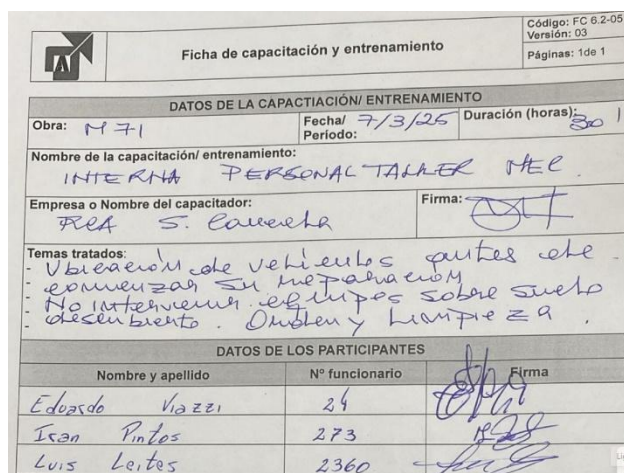 Código: FC 6.2-05
Versión: 03
Ficha de capacitación y entrenamiento
Páginas: 1de 1
DATOS DE LA CAPACTIACIÓN/ ENTRENAMIENTO
Obra: M 71
Fecha/ Período: 7/3/25
Duración (horas): 30
Nombre de la capacitación/ entrenamiento:
INTERNA PERSONAL TALLER MEC.
Empresa o Nombre del capacitador:
S.
Firma:
Temas tratados:
- Ubicación de vehículos antes de
- comenzar su reparación
- No intervenir equipos sobre suelo
- descubierto. Orden y Limpieza.
DATOS DE LOS PARTICIPANTES
Nombre y apellido Nº funcionario Firma
Eduardo Viazzi 24
Ivan Pintos 273
Luis Leites 2360